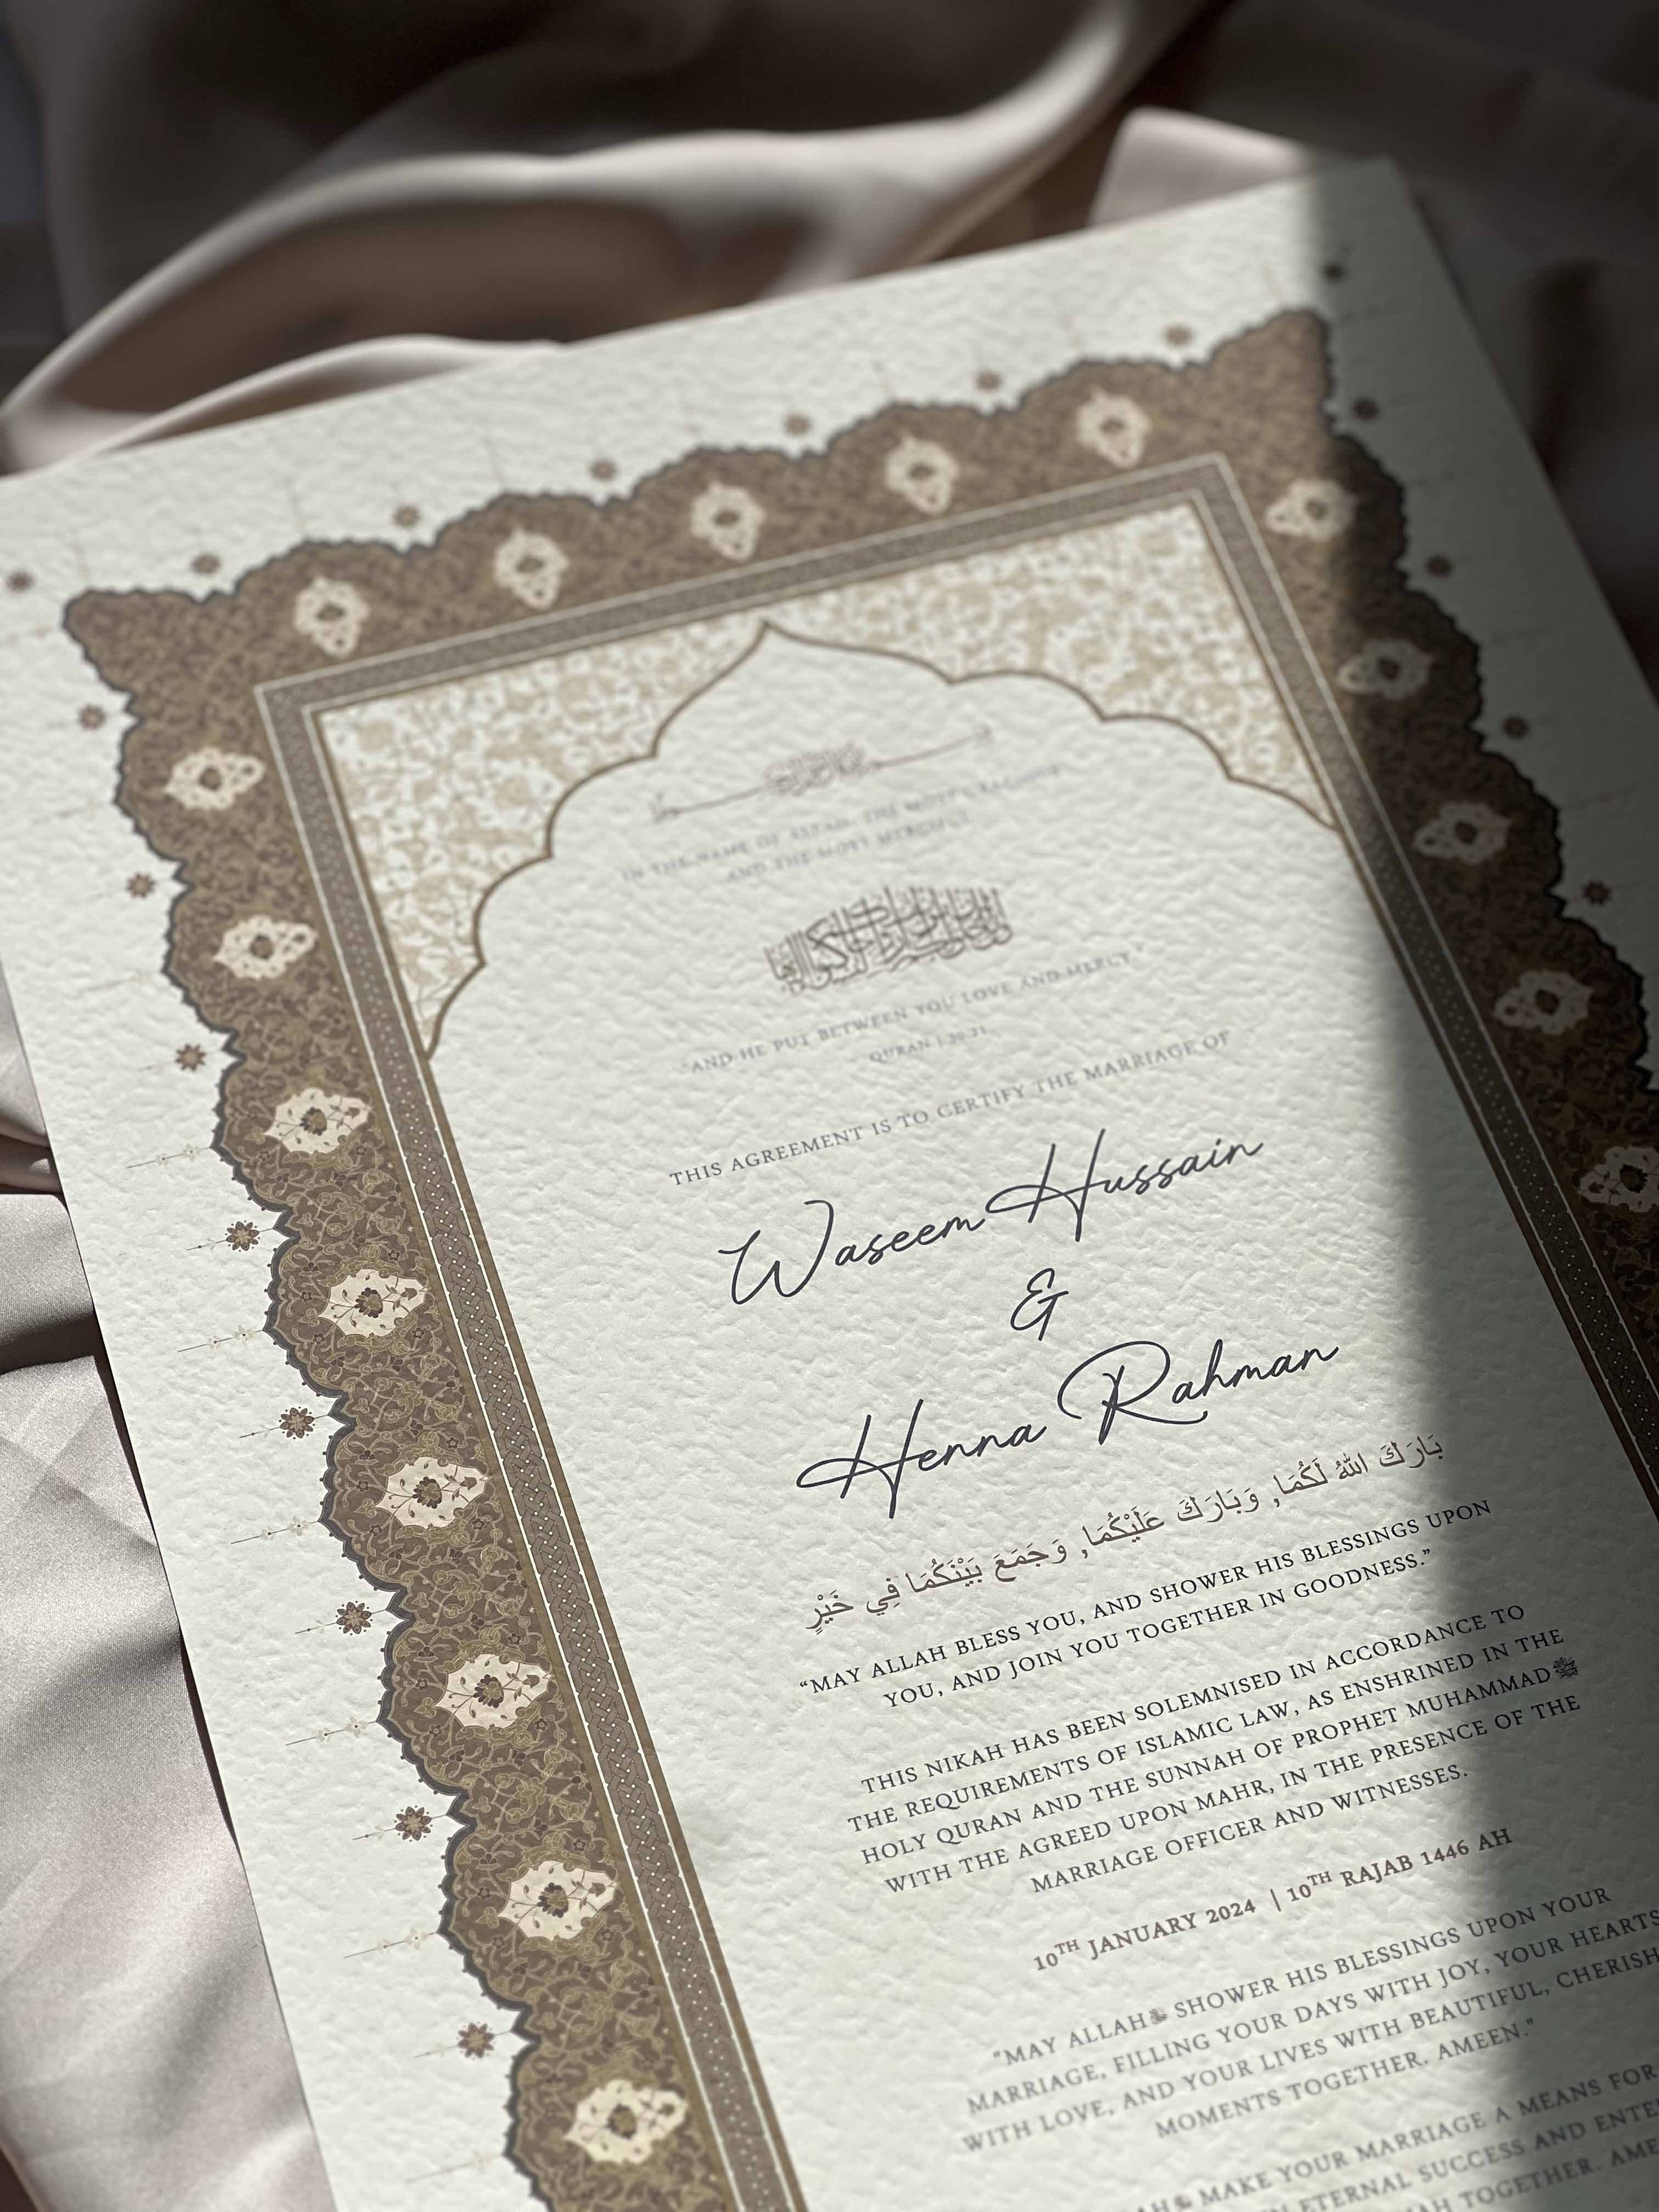 IN THE NAME OF ALLAH, THE MOST GRACIOUS
AND THE MOST MERCIFUL
"AND HE PUT BETWEEN YOU LOVE AND MERCY"
QURAN | 30:21
THIS AGREEMENT IS TO CERTIFY THE MARRIAGE OF
Waseem Hussain
&
Henna Rahman
بَارَكَ اللهُ لَكُمَا, وَبَارَكَ عَلَيْكُمَا, وَجَمَعَ بَيْنَكُمَا فِي خَيْرٍ
“MAY ALLAH BLESS YOU, AND SHOWER HIS BLESSINGS UPON
YOU, AND JOIN YOU TOGETHER IN GOODNESS.”
THIS NIKAH HAS BEEN SOLEMNISED IN ACCORDANCE TO
THE REQUIREMENTS OF ISLAMIC LAW, AS ENSHRINED IN THE
HOLY QURAN AND THE SUNNAH OF PROPHET MUHAMMAD ﷺ
WITH THE AGREED UPON MAHR, IN THE PRESENCE OF THE
MARRIAGE OFFICER AND WITNESSES.
10TH JANUARY 2024 | 10TH RAJAB 1446 AH
"MAY ALLAH SHOWER HIS BLESSINGS UPON YOUR
MARRIAGE, FILLING YOUR DAYS WITH JOY, YOUR HEARTS
WITH LOVE, AND YOUR LIVES WITH BEAUTIFUL, CHERISH
MOMENTS TOGETHER. AMEEN."
MAKE YOUR MARRIAGE A MEANS FOR
ETERNAL SUCCESS AND ENTE
TOGETHER. AME